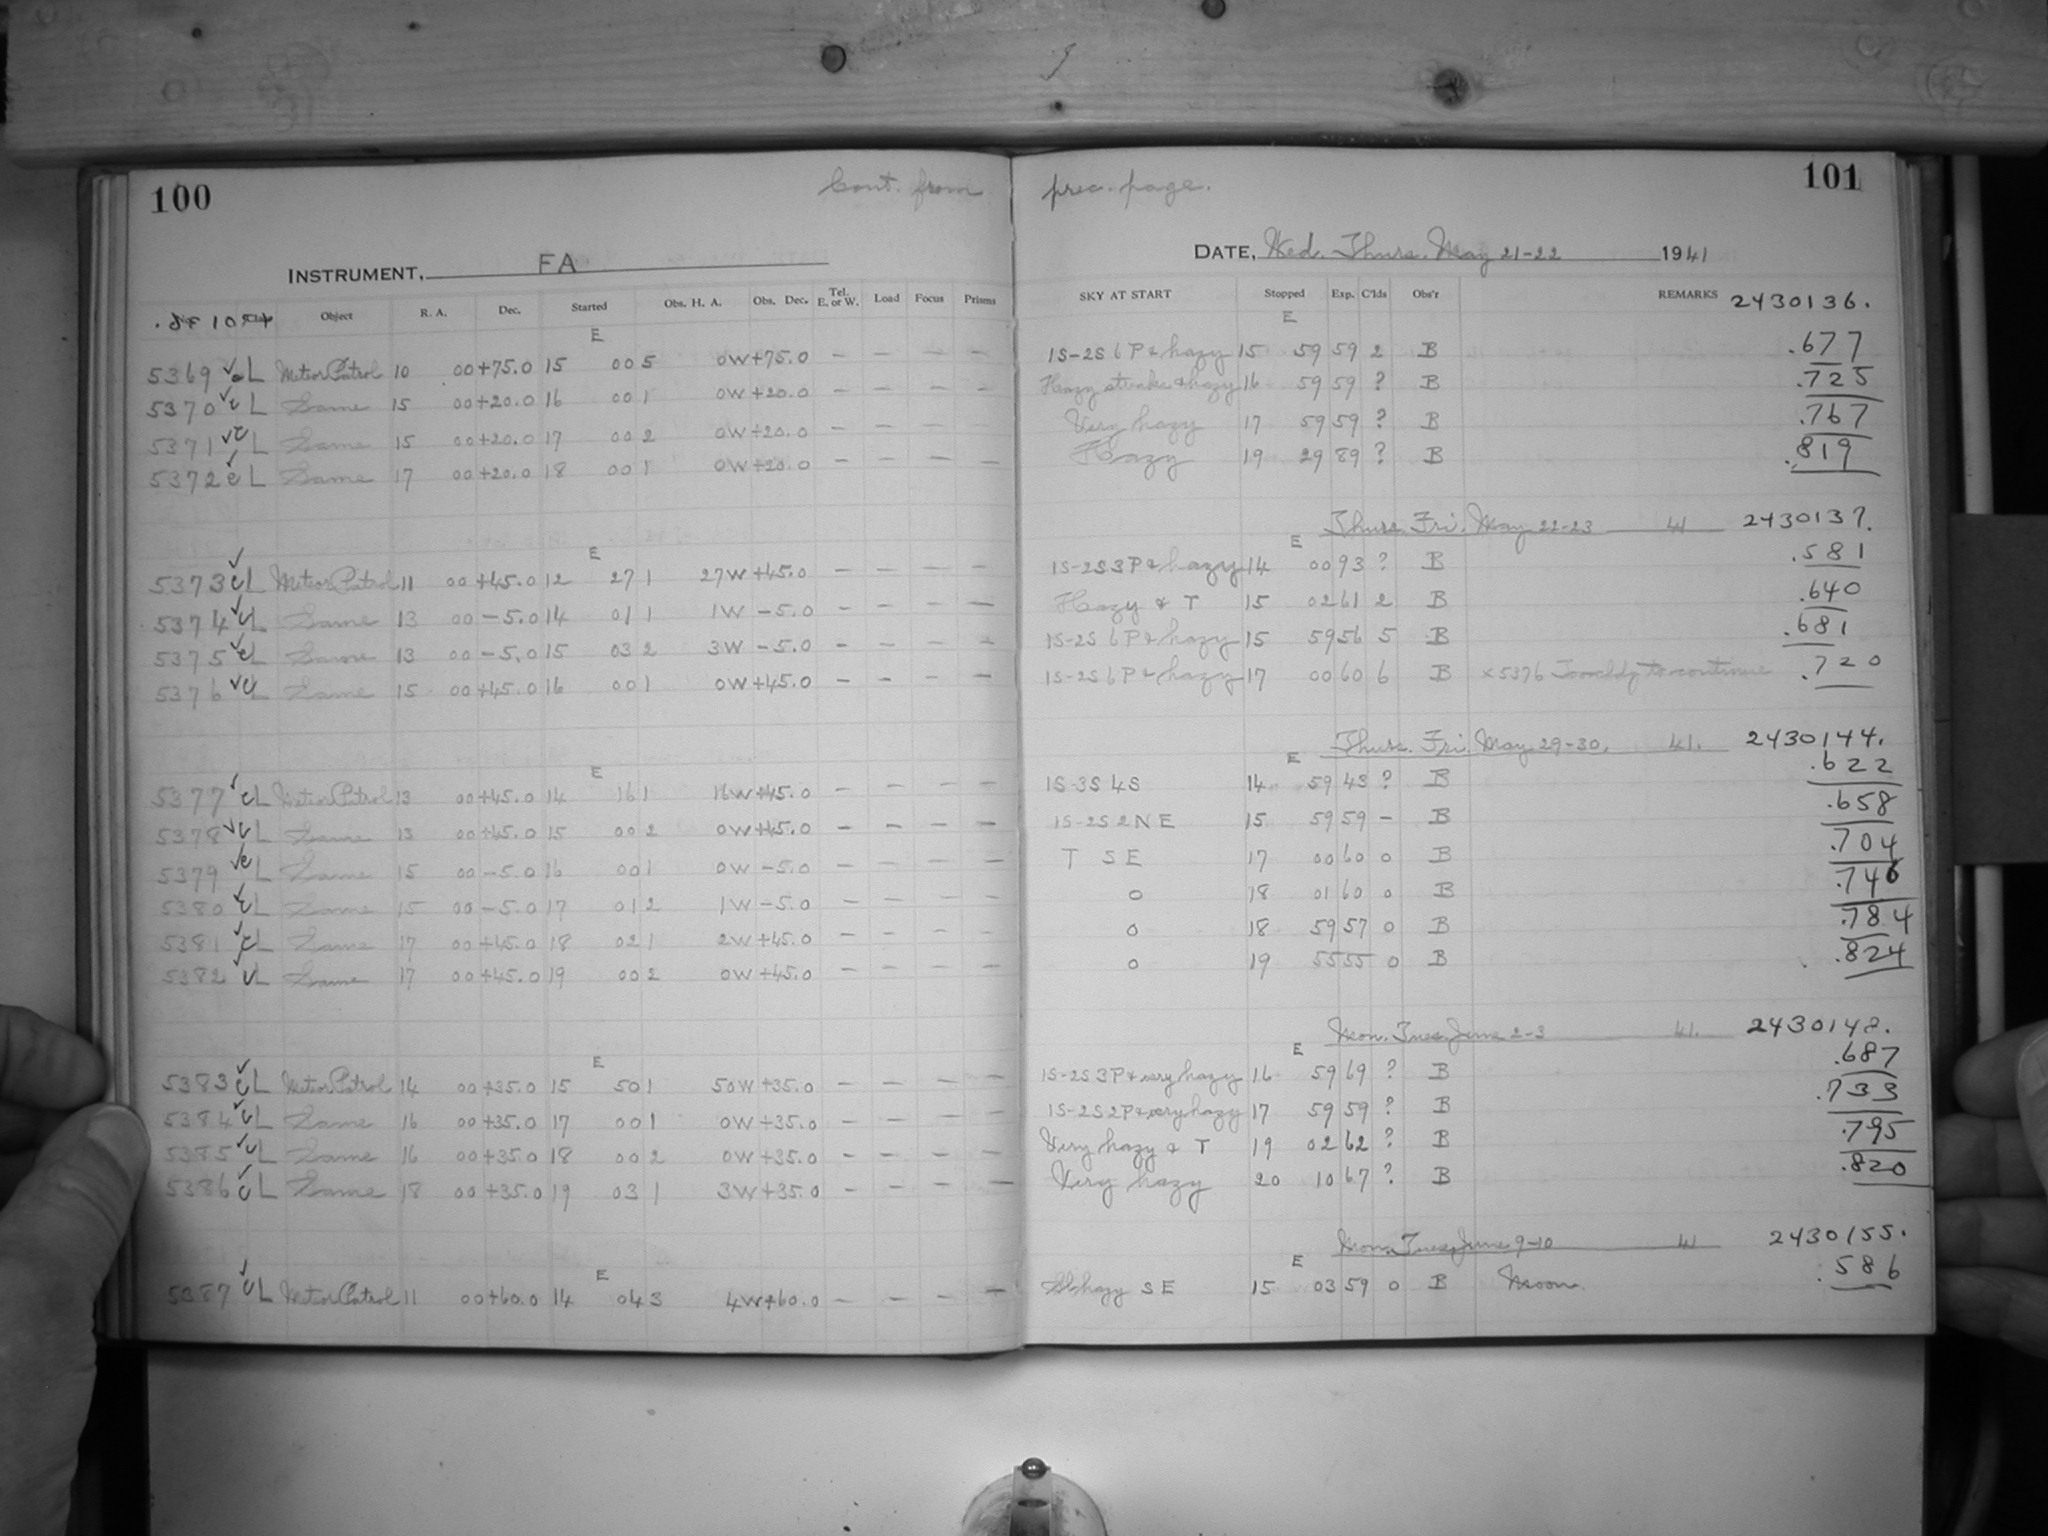 100
Cont. from prec. page.
101
INSTRUMENT, FA
DATE, Wed. Thurs. May 21-22 1941
Object R. A. Dec. Started Obs. H. A. Obs. Dec. Tel. E. or W. Load Focus Prisms SKY AT START Stopped Exp. C'lds Obs'r REMARKS 2430136.
E E
5369 L Meteor Patrol 10 00 +75.0 15 00 5 0W +75.0 — — — — 1S-2S 6P & hazy 15 59 59 2 B .677
5370 L Same 15 00 +20.0 16 00 1 0W +20.0 — — — — Hazy streaks & hazy 16 59 59 ? B .725
5371 L Same 15 00 +20.0 17 00 2 0W +20.0 — — — — Very hazy 17 59 59 ? B .767
5372 L Same 17 00 +20.0 18 00 1 0W +20.0 — — — — Hazy 19 29 89 ? B .819
Thurs. Fri. May 22-23 41 2430137.
E E
5373 L Meteor Patrol 11 00 +45.0 12 27 1 27W +45.0 — — — — 1S-2S 3P & hazy 14 00 93 ? B .581
5374 L Same 13 00 -5.0 14 01 1 1W -5.0 — — — — Hazy & T 15 02 61 2 B .640
5375 L Same 13 00 -5.0 15 03 2 3W -5.0 — — — — 1S-2S 6P & hazy 15 59 56 5 B .681
5376 L Same 15 00 +45.0 16 00 1 0W +45.0 — — — — 1S-2S 6P & hazy 17 00 60 6 B x5376 Too cldy to continue .720
Thurs. Fri. May 29-30, 41. 2430144.
E E
5377 L Meteor Patrol 13 00 +45.0 14 16 1 16W +45.0 — — — — 1S-3S 4S 14 59 43 ? B .622
5378 L Same 13 00 +45.0 15 00 2 0W +45.0 — — — — 1S-2S 2NE 15 59 59 — B .658
5379 L Same 15 00 -5.0 16 00 1 0W -5.0 — — — — T SE 17 00 60 0 B .704
5380 L Same 15 00 -5.0 17 01 2 1W -5.0 — — — — 0 18 01 60 0 B .746
5381 L Same 17 00 +45.0 18 02 1 2W +45.0 — — — — 0 18 59 57 0 B .784
5382 L Same 17 00 +45.0 19 00 2 0W +45.0 — — — — 0 19 55 55 0 B .824
Mon. Tues. June 2-3 41. 2430148.
E E
5383 L Meteor Patrol 14 00 +35.0 15 50 1 50W +35.0 — — — — 1S-2S 3P & very hazy 16 59 69 ? B .687
5384 L Same 16 00 +35.0 17 00 1 0W +35.0 — — — — 1S-2S 2P & very hazy 17 59 59 ? B .733
5385 L Same 16 00 +35.0 18 00 2 0W +35.0 — — — — Very hazy & T 19 02 62 ? B .795
5386 L Same 18 00 +35.0 19 03 1 3W +35.0 — — — — Very hazy 20 10 67 ? B .820
Mon. Tues. June 9-10 41 2430155.
E E
5387 L Meteor Patrol 11 00 +60.0 14 04 3 4W +60.0 — — — — Sl hazy SE 15 03 59 0 B Moon. .586